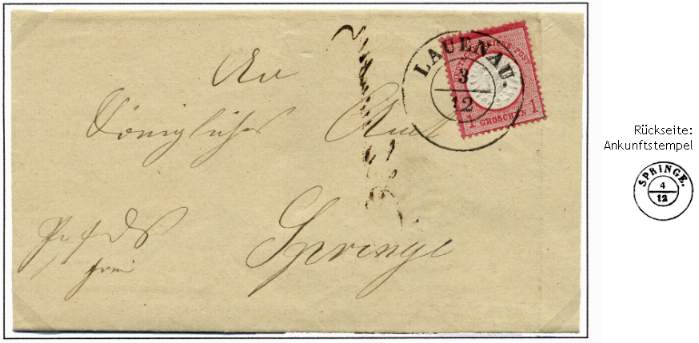 LAUENAU.
3
12
1 GROSCHEN 1
An
Königliches Amt
Springe
frei
Rückseite:
Ankunftstempel
SPRINGE.
4
12